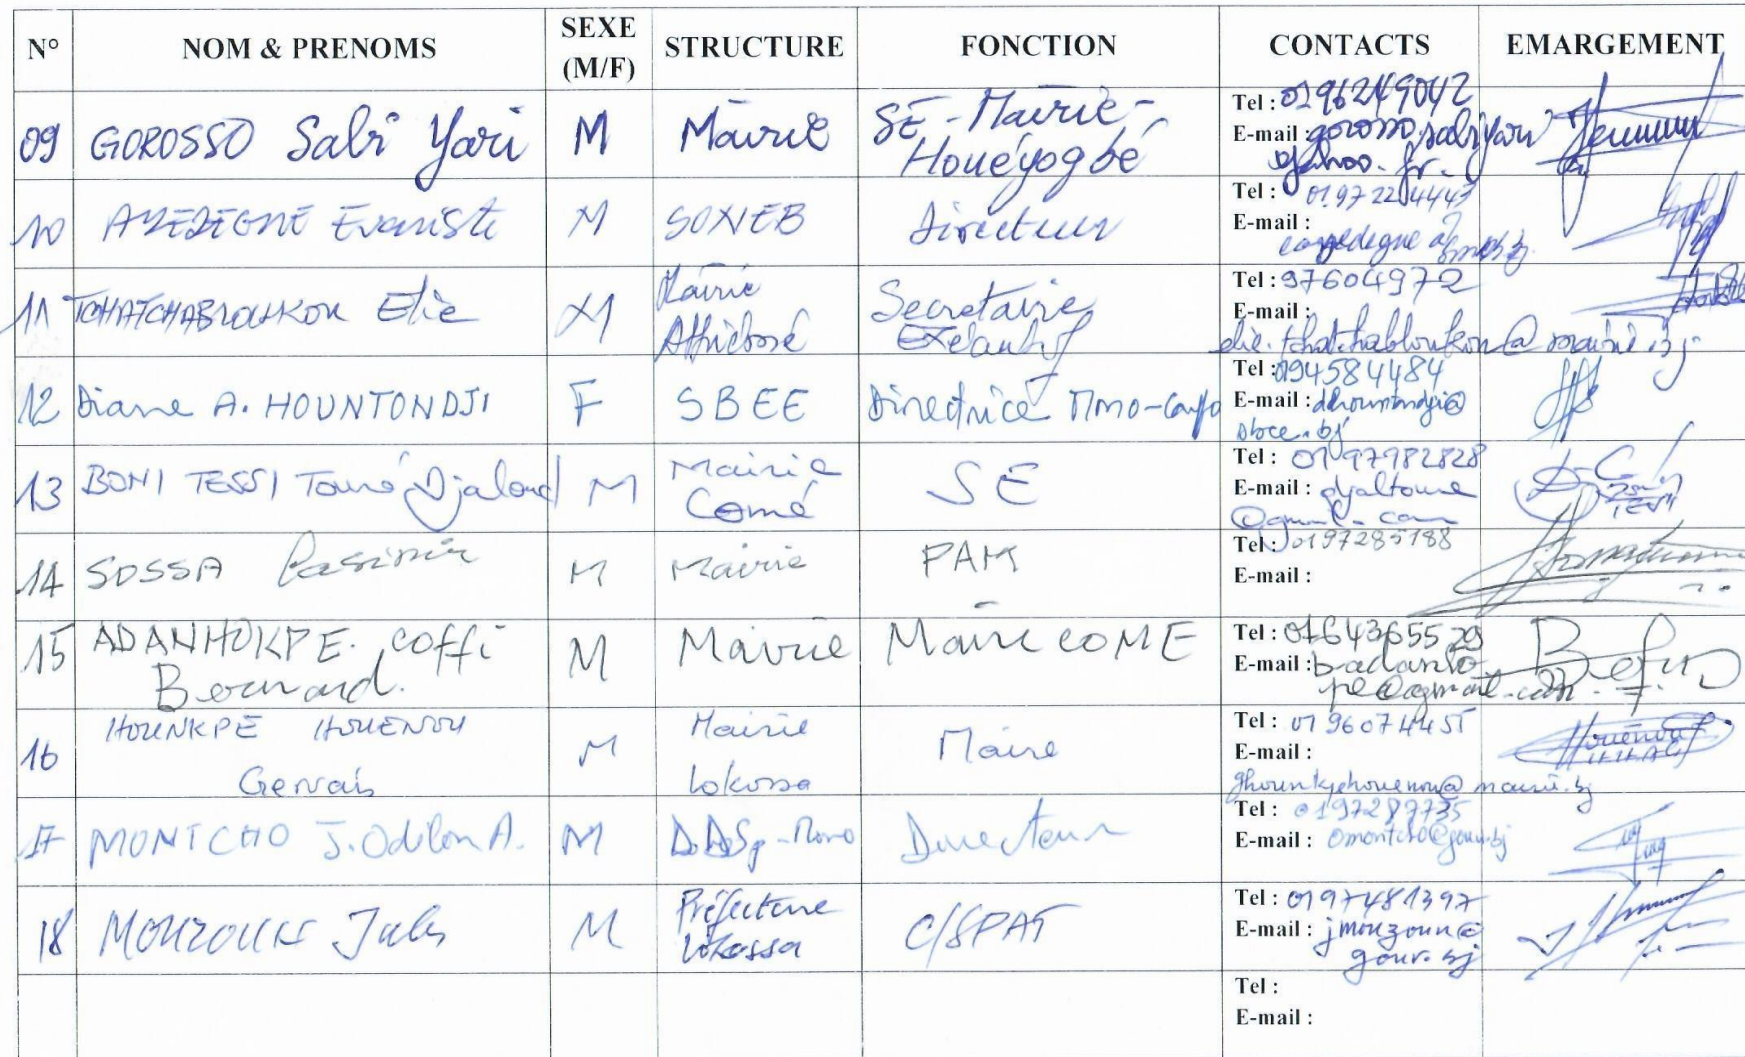 N° NOM & PRENOMS SEXE (M/F) STRUCTURE FONCTION CONTACTS EMARGEMENT
09 GOROSSO Sabi Yari M Mairie SE-Mairie-Houéyogbé Tel : 0196249042
E-mail : gorosso.sabiyari@yahoo.fr
10 AYEDEGNE Evariste M SONEB Directeur Tel : 0197224447
E-mail :
11 TCHATCHABLOUKOU Elie M Mairie Athiémé Secrétaire Exécutif Tel : 97604972
E-mail : elie.tchatchabloukou@mairie.bj
12 Diane A. HOUNTONDJI F SBEE Directrice Mono-Couffo Tel : 0194584484
E-mail : dhountondji@sbee.bj
13 BONI TESSI Touré Djaloud M Mairie Comé SE Tel : 0197982828
E-mail : djaltoure@gmail.com
14 SOSSA Casimir M Mairie PAM Tel : 0197285188
E-mail :
15 ADANHOKPE. Coffi Bernard. M Mairie Maire COME Tel : 0164365529
E-mail : badanhokpe@gmail.com
16 HOUNKPE HOUENOU Gervais M Mairie Lokossa Maire Tel : 0196074455
E-mail : ghounkpehouenou@mairie.bj
17 MONTCHO J. Odilon A. M DDSP-Mono Directeur Tel : 0197287735
E-mail : omontcho@gouv.bj
18 MOUZOUN Jules M Préfecture Lokossa C/SPAT Tel : 0197481397
E-mail : jmouzoun@gouv.bj
Tel :
E-mail :